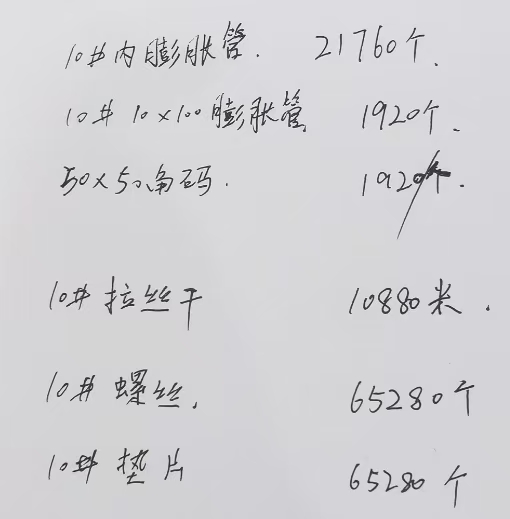 10#内膨胀管. 21760个.
10# 10×100膨胀管 1920个.
50×50角码. 1920个.
10#拉丝干 10880米.
10#螺丝, 65280个
10#垫片 65280个